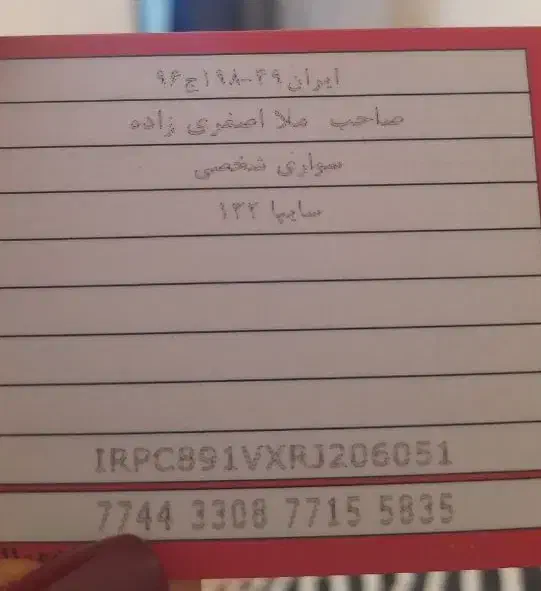 ایران ۴۹-۱۹۸ج۹۶
صاحب ملا اصغری زاده
سواری شخصی
سایپا ۱۳۲
IRPC891VXRJ206051
7744 3308 7715 5835